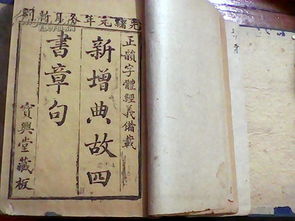 光緒元年冬月新刊
正韻字體經義備載
新增典故四
書章句
寶興堂藏板